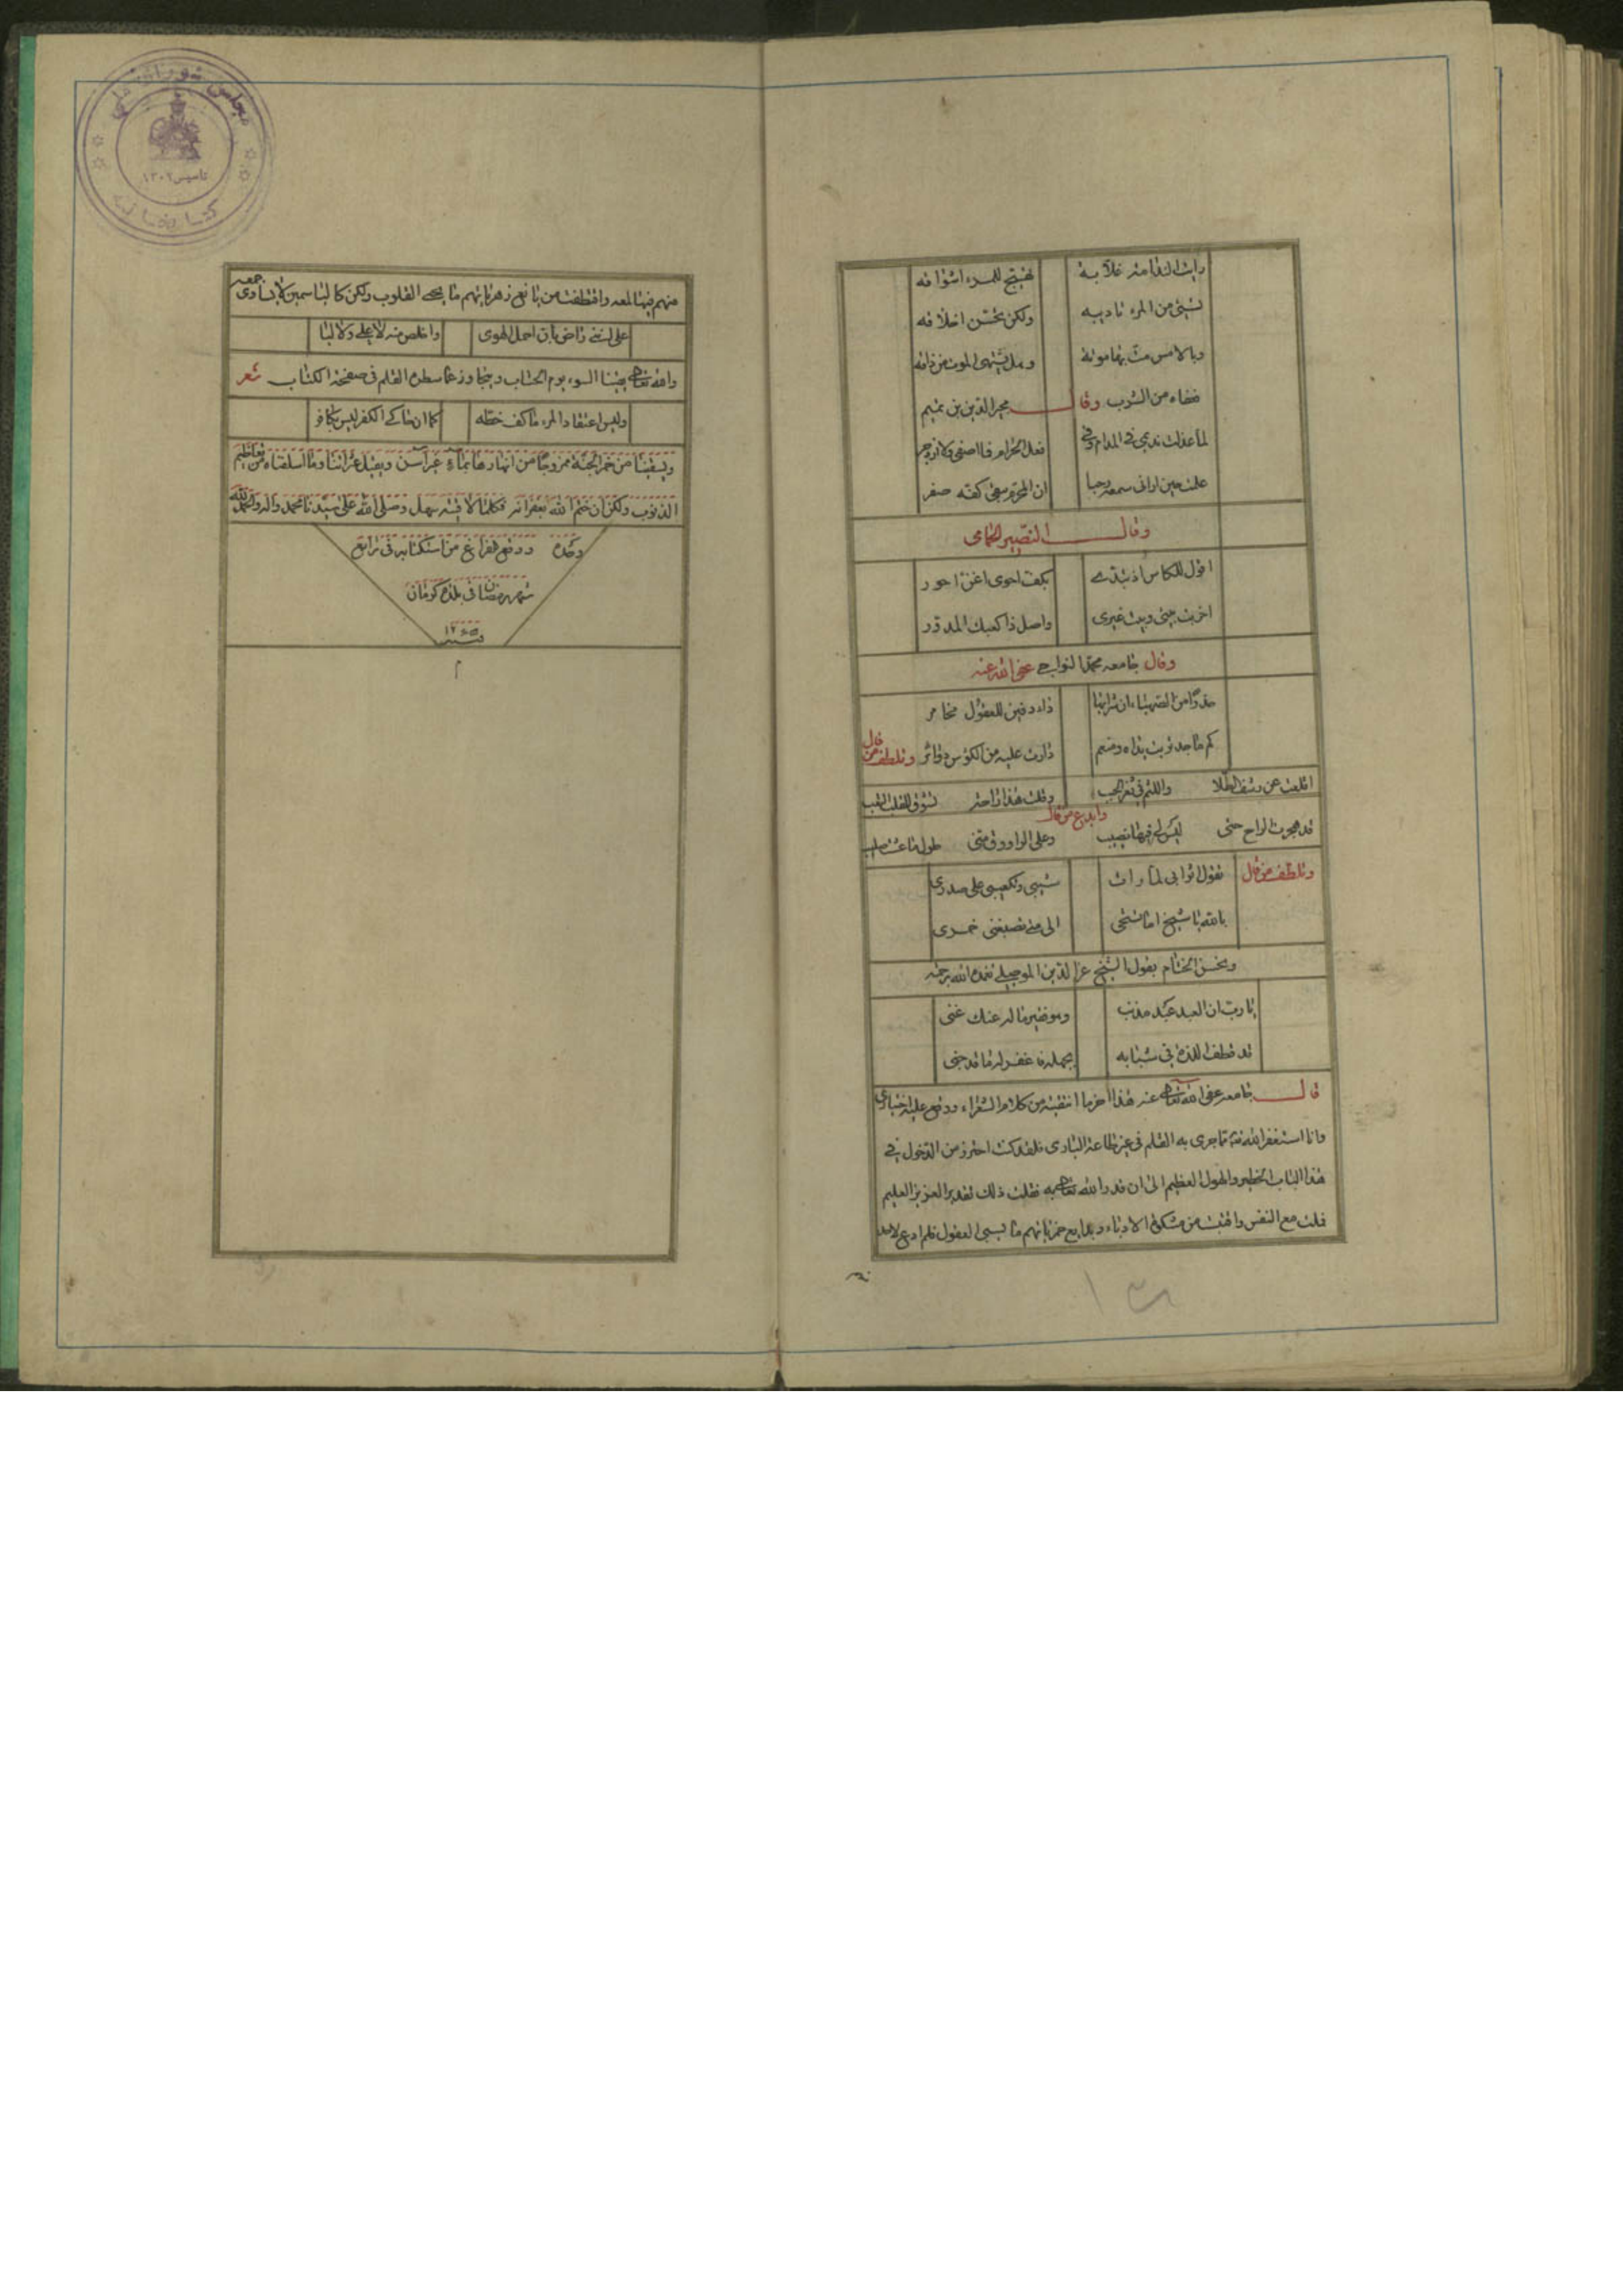 رايت المدامة غلابة تهيج للمرء اشواقه
تسيئ من المرء تاديبه ولكن تحسن اخلاقه
وبالامس مت بها موتة وهل يشتهى الموت من ذاقه
مجير الدين بن تميم
لما عذلت نديمي في المدام وفي فعل الحرام فما اصغى ولا ازدجر
علمت حين اوانى سمعه
وقال النصير الحمامى
اقول للكاس اذ تبدت بكف احوى اغن احور
اخربت بيتى وبيت غيرى واصل ذا كعبك المدور
وقال جامعه محمد النواجى عفى الله عنه
حذرا من الصهباء ان شرابها داء دفين للعقول مخامر
كم ماجد تربت يداه دارت عليه من الكؤس دوائر وتلطف من قال
اقلعت عن رشف الطلا واللثم في ثغر الحبب
وقلت هذا راحة تسوق للقلب التعب
وابدع من قال
قد هجرت الراح حتى ليس لي فيها نصيب
وعلى الراووق منى طول ما عشت صليب
وتلطف من قال تقول اثوابى لما رات شيبى وتكعيبى على صدرى
بالله يا شيخ اما تستحى الى متى تصبغنى خمرى
ويحسن الختام بقول الشيخ عز الدين الموصلي تغمده الله برحمته
يا رب ان العبد عبد مذنب وهو فقير ما له عنك غنى
قد قطف اللذة في شبابه بجهله فاغفر له ما قد جنى
قال جامعه عفى الله تعالى عنه هذا اخر ما انتقيته من كلام الشعراء ووقع عليه اختيارى
وانا استغفر الله مما جرى به القلم في غير طاعة البارى فلقد كنت احترز من الدخول في
هذا الباب الخطير والهول العظيم الى ان قدر الله تعالى به فقلت ذلك تقدير العزيز العليم
فملت مع النفس واقتبست من مشكوة الادباء وبدايع خمرياتهم ما يسبى العقول فلم ادع لاحد
منهم فيها لمعه واقتطفت من يانع زهرياتهم ما يحيى القلوب ولكن كالياسمين لا يساوى جمعه
على اننى راض بان احمل الهوى واخلص منه لا على ولا ليا
والله تعالى يقينا السوء يوم الحساب ويتجاوز عما سطره القلم في صفحة الكتاب شعر
وليس اعتقاد المرء ما كف خطه كما ان حاكى الكفر ليس بكافر
ويسقينا من خمر الجنة ممزوجا من انهارها بماء غير آسن ويقيل عثراتنا وما اسلفناه من عظيم
الذنوب ولكن ان ختم الله بغفرانه فكلما لاقيته سهل وصلى الله على سيدنا محمد وآله والحمد لله
وحده ووقع الفراغ من استكتابه في رابع
شهر رمضان في بلدة كرمان
سنة ١٢٦٥
م
مجلس شوراى ملى
تاسيس ١٣٠٢
كتابخانه